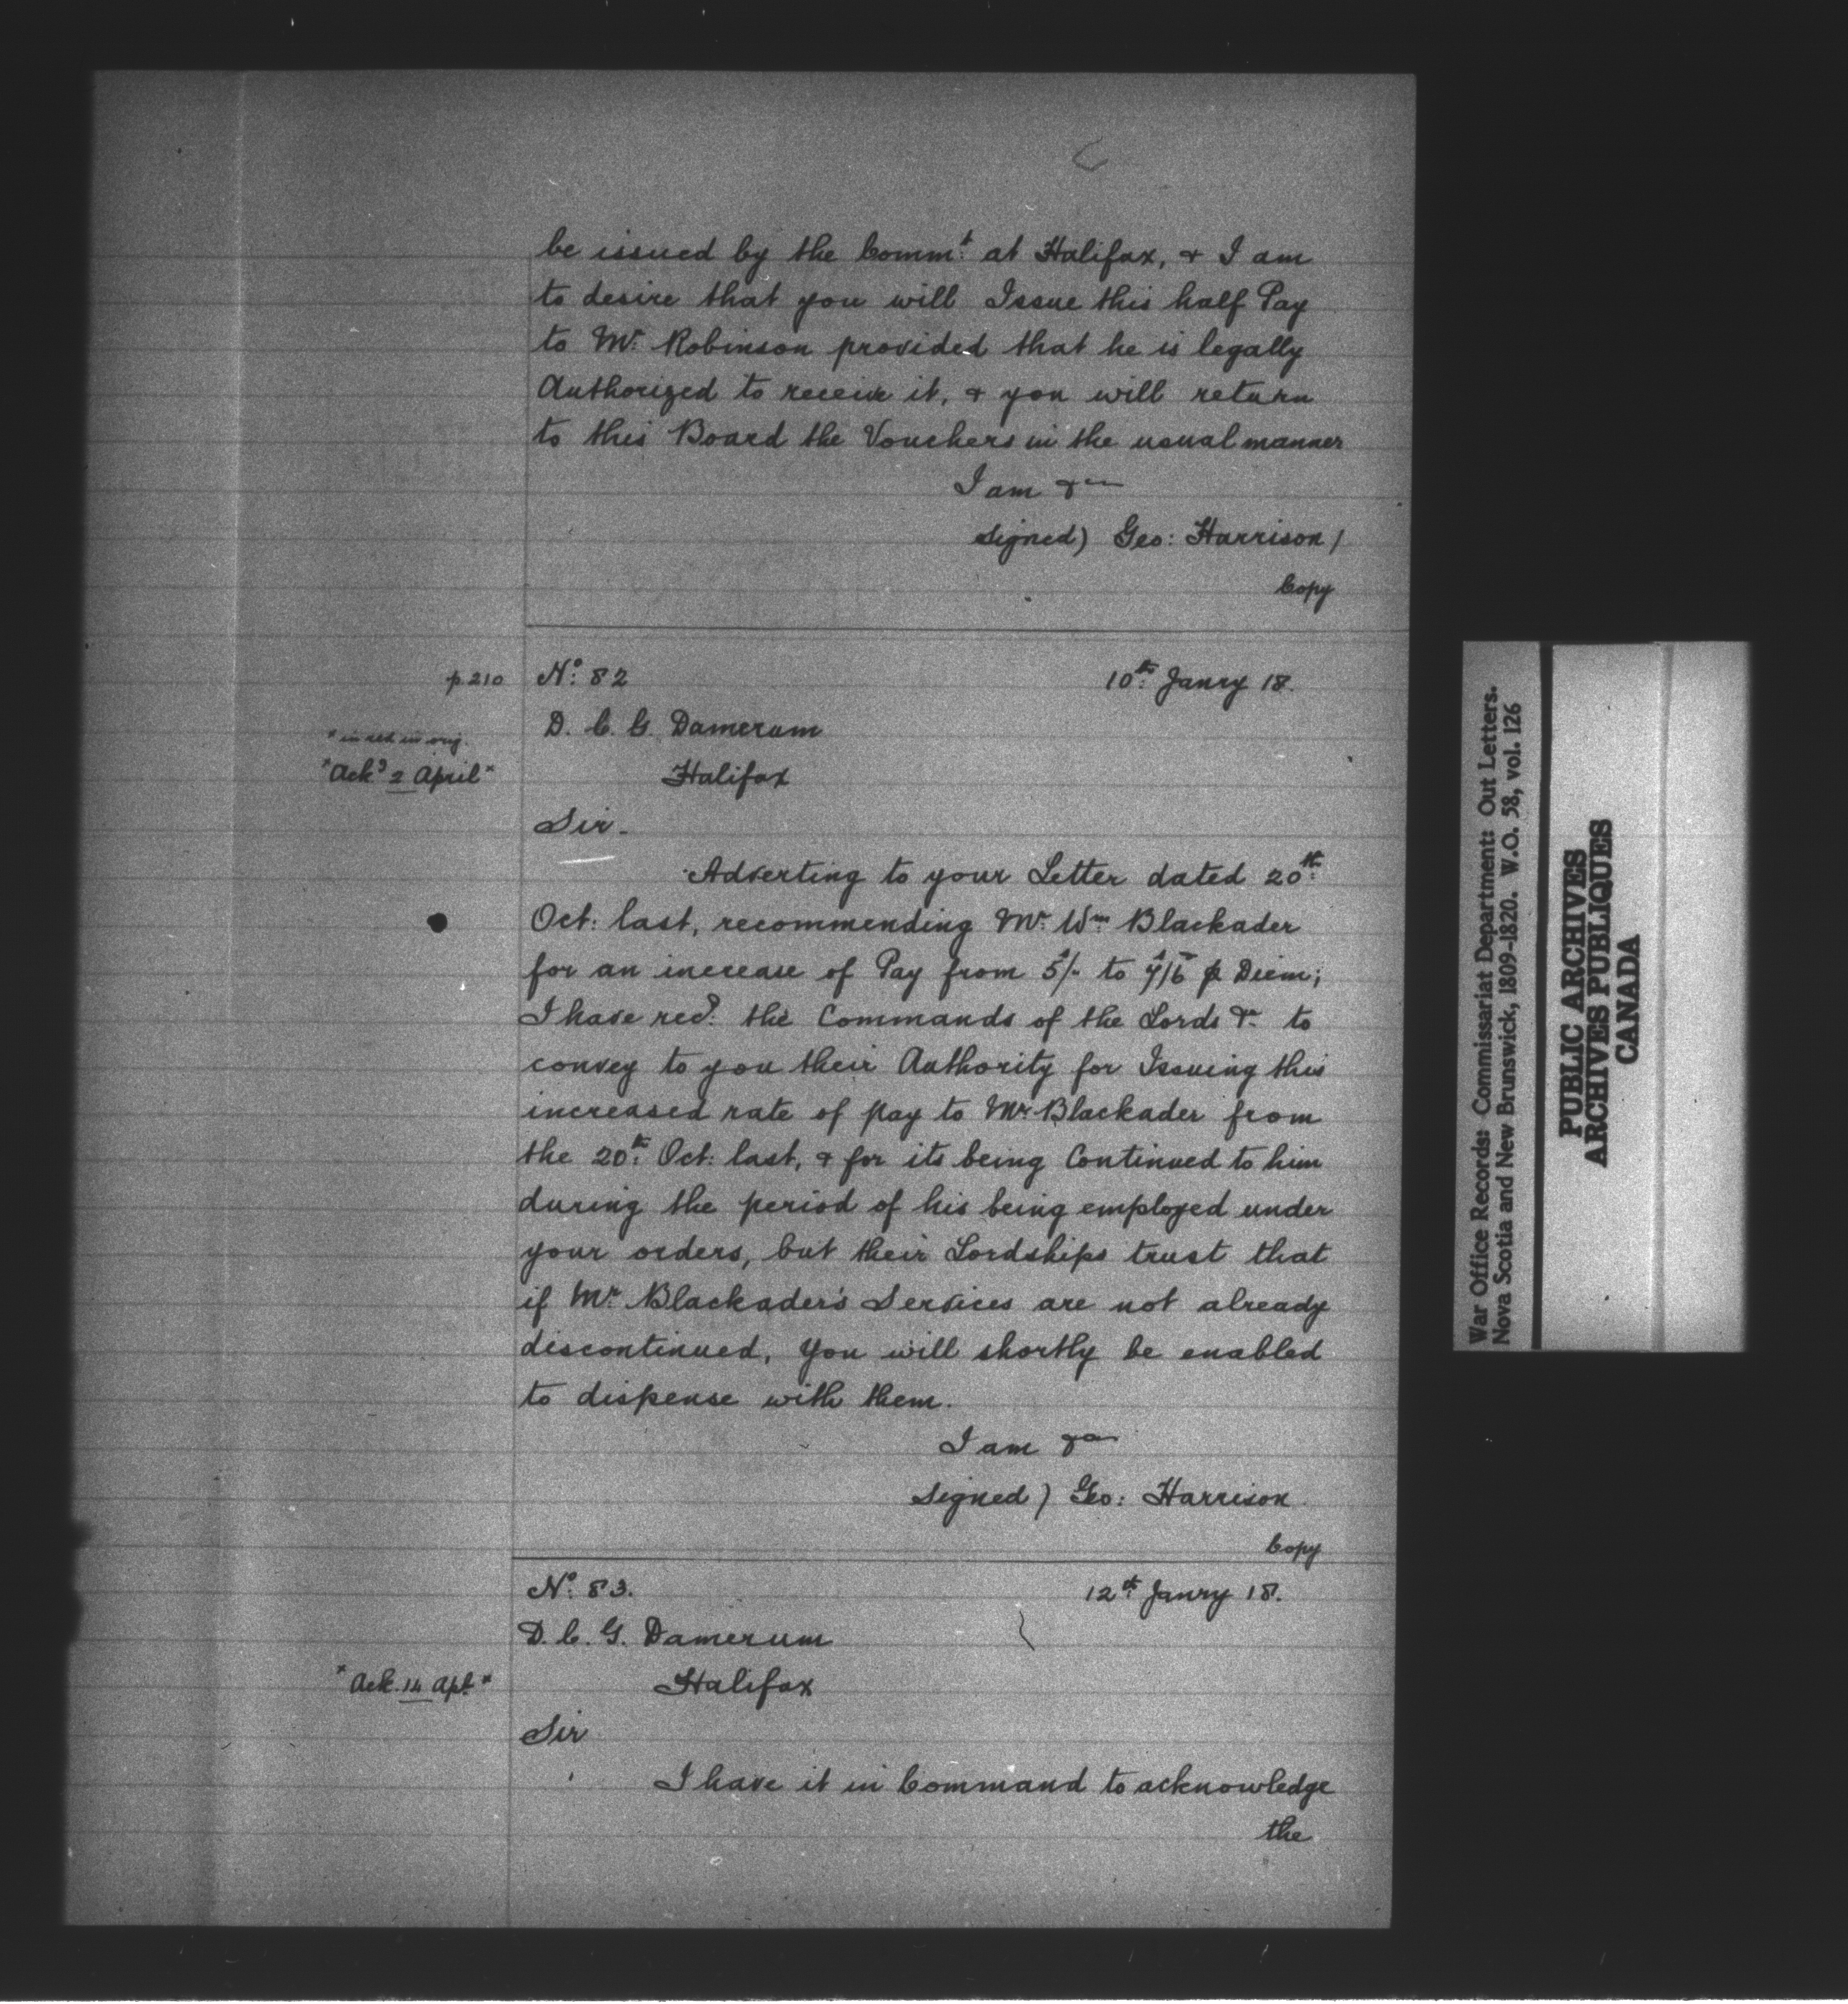 be issued by the Commt. at Halifax, & I am
to desire that you will Issue this half Pay
to Mr. Robinson provided that he is legally
Authorized to receive it, & you will return
to this Board the Vouchers in the usual manner
I am &c
signed) Geo: Harrison /
Copy
p 210 No: 82 10th: Janry 18.
D. C. G. Damerum
* in red in orig.
Halifax
*Ackd 2 April*
Sir.
Adverting to your Letter dated 20th:
Oct: last, recommending Mr. Wm. Blackader
for an increase of Pay from 5/- to 7/6 p Diem;
I have recd. the Commands of the Lords &c to
convey to you their Authority for Issuing this
increased rate of pay to Mr. Blackader from
the 20th: Oct: last, & for its being Continued to him
during the period of his being employed under
your orders, but their Lordships trust that
if Mr. Blackader's Services are not already
discontinued, you will shortly be enabled
to dispense with them.
I am &c
signed) Geo: Harrison
Copy
No: 83. 12th: Janry 18.
D. C. G. Damerum
*Ack. 14 Apl.* Halifax
Sir
I have it in Command to acknowledge
the
War Office Records: Commissariat Department: Out Letters.
Nova Scotia and New Brunswick, 1809-1820. W.O. 58, vol. 126
PUBLIC ARCHIVES
ARCHIVES PUBLIQUES
CANADA